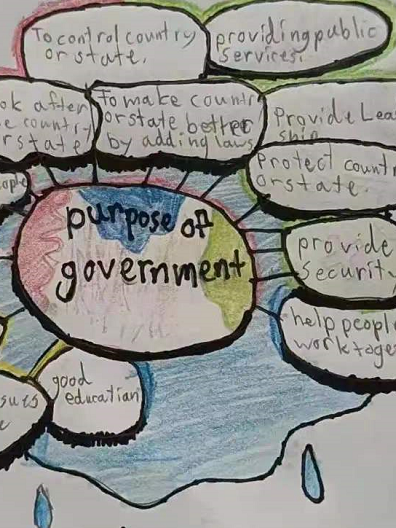 To control country
or state.
providing public
services.
ok after
e country
r state
To make countr
or state better
by adding laws
Provide Lea
ship
Protect countr
or state.
eople
purpose of
government
provide
Security
help people
work toge
good
education
sues
e